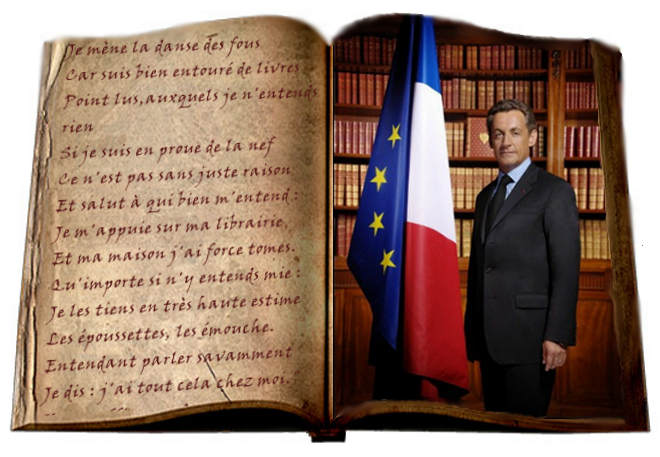 Je mène la danse des fous
Car suis bien entouré de livres
Point lus, auxquels je n'entends
rien
Si je suis en proue de la nef
Ce n'est pas sans juste raison
Et salut à qui bien m'entend :
Je m'appuie sur ma librairie,
Et ma maison j'ai force tomes.
Qu'importe si n'y entends mie :
Je les tiens en très haute estime
Les époussettes, les émouche.
Entendant parler savamment
Je dis : j'ai tout cela chez moi.